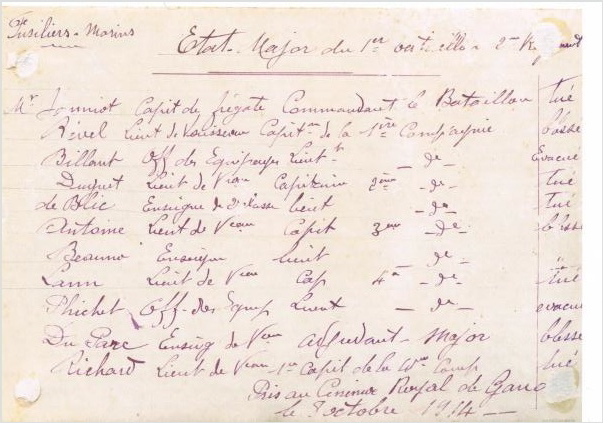 Fusiliers-Marins
Etat-Major du 1er bataillon 2me Régiment
Mr Jouniot Capit de frégate Commandant le Bataillon tué
Révél Lieut de Vaisseau Capitne de la 1ère Compagnie blessé
Billant Off des Equipages Lieutt — de — Evacué
Duguet Lieut de Veau Capitaine 2ème — de — tué
de Blic Enseigne de 2e classe lieut — de — tué
Antoine Lieut de Veau Capit 3me — de — blessé
Enseigne lieut — de —
Lann Lieut de Veau Cap 4me — de — tué
Plichet Off-des Equip Lieut — de — evacué
Du Parc Enseig de Veau adjudant-Major blessé
Richard Lieut de Veau-1er Capit de la Comp tué
Pris au Royal de Gand
le 8 octobre 1914 —